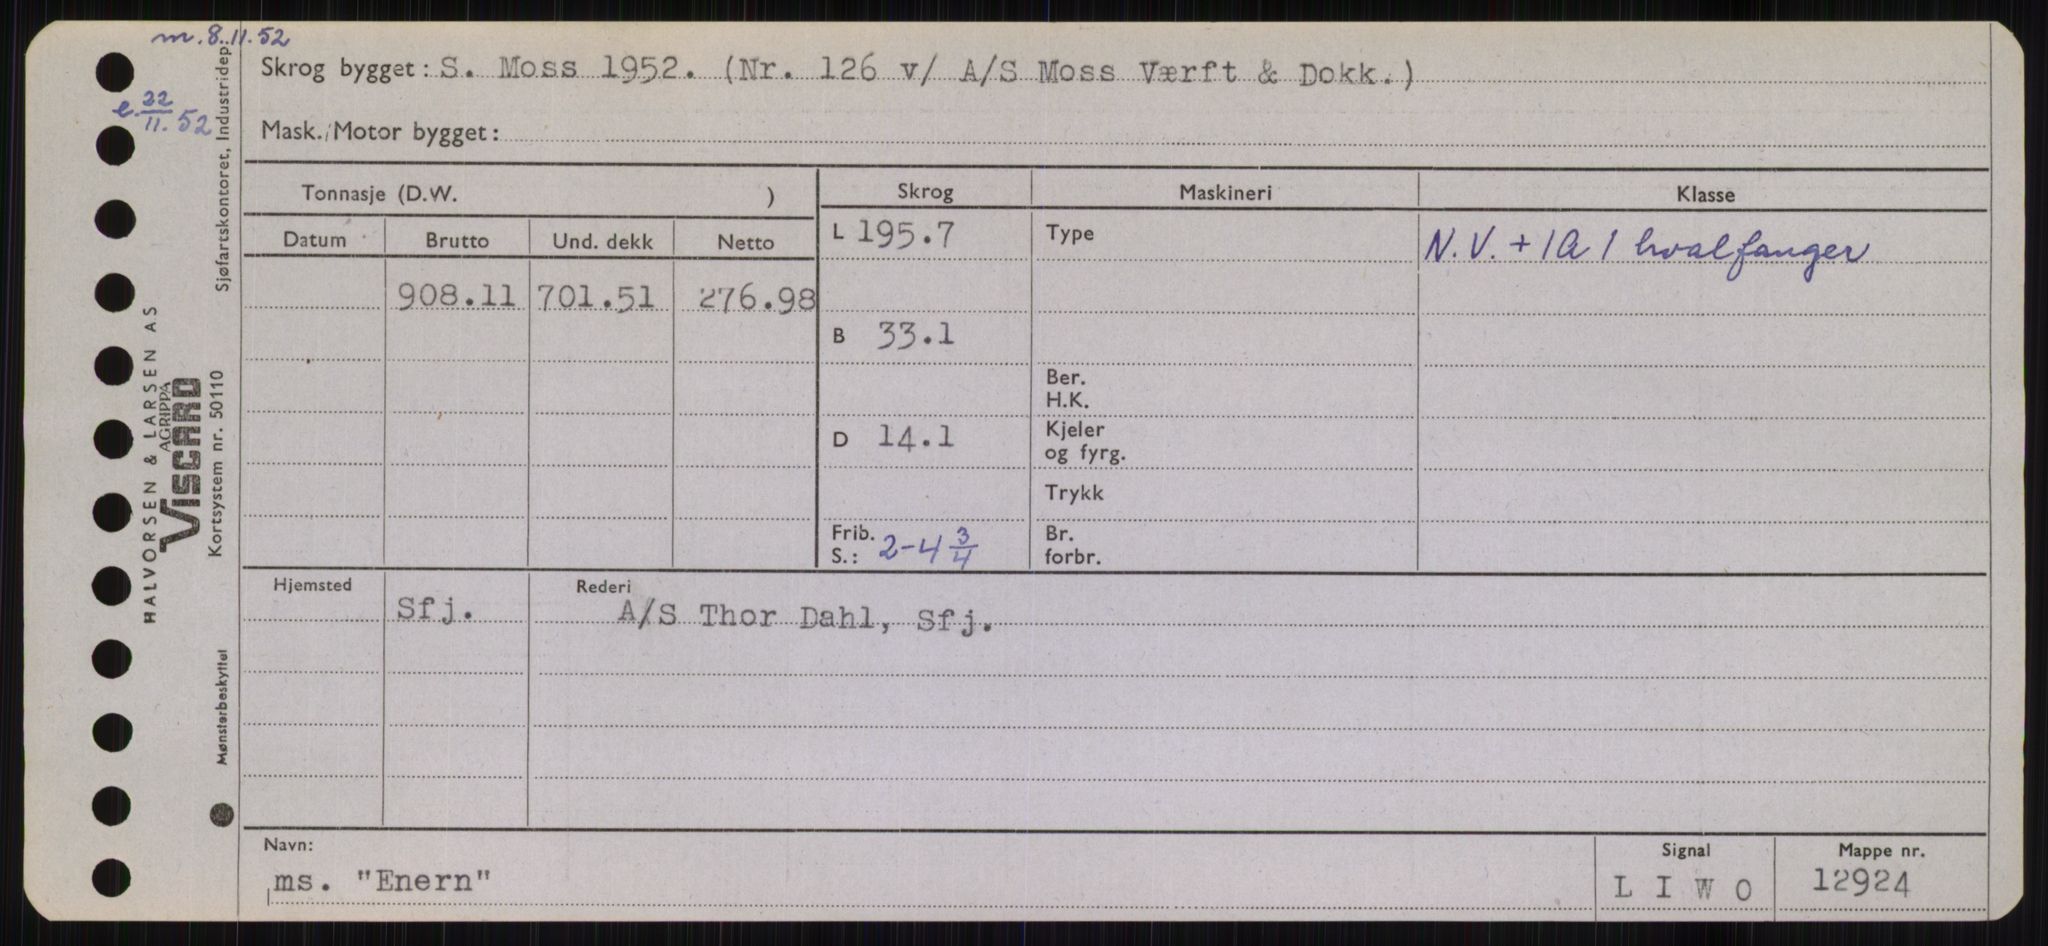 m. 8.11.52
Skrog bygget: S. Moss 1952. (Nr. 126 v/ A/S Moss Værft & Dokk.)
e. 22/11.52
Mask./Motor bygget:
Tonnasje (D.W. )
Skrog Maskineri Klasse
Datum Brutto Und. dekk Netto
L 195.7 Type N.V. + 1A1 hvalfanger
908.11 701.51 276.98
B 33.1
Ber.
H.K.
D 14.1 Kjeler
og fyrg.
Trykk
Frib.
S.: 2-4 3/4
Br.
forbr.
Hjemsted Rederi
Sfj. A/S Thor Dahl, Sfj.
Navn: Signal Mappe nr.
ms. "Enern" L I W O 12924
Sjøfartskontoret, Industridep.
Kortsystem nr. 50110
Mønsterbeskyttet
HALVORSEN & LARSEN AS
AGRIPPA
VISCARD